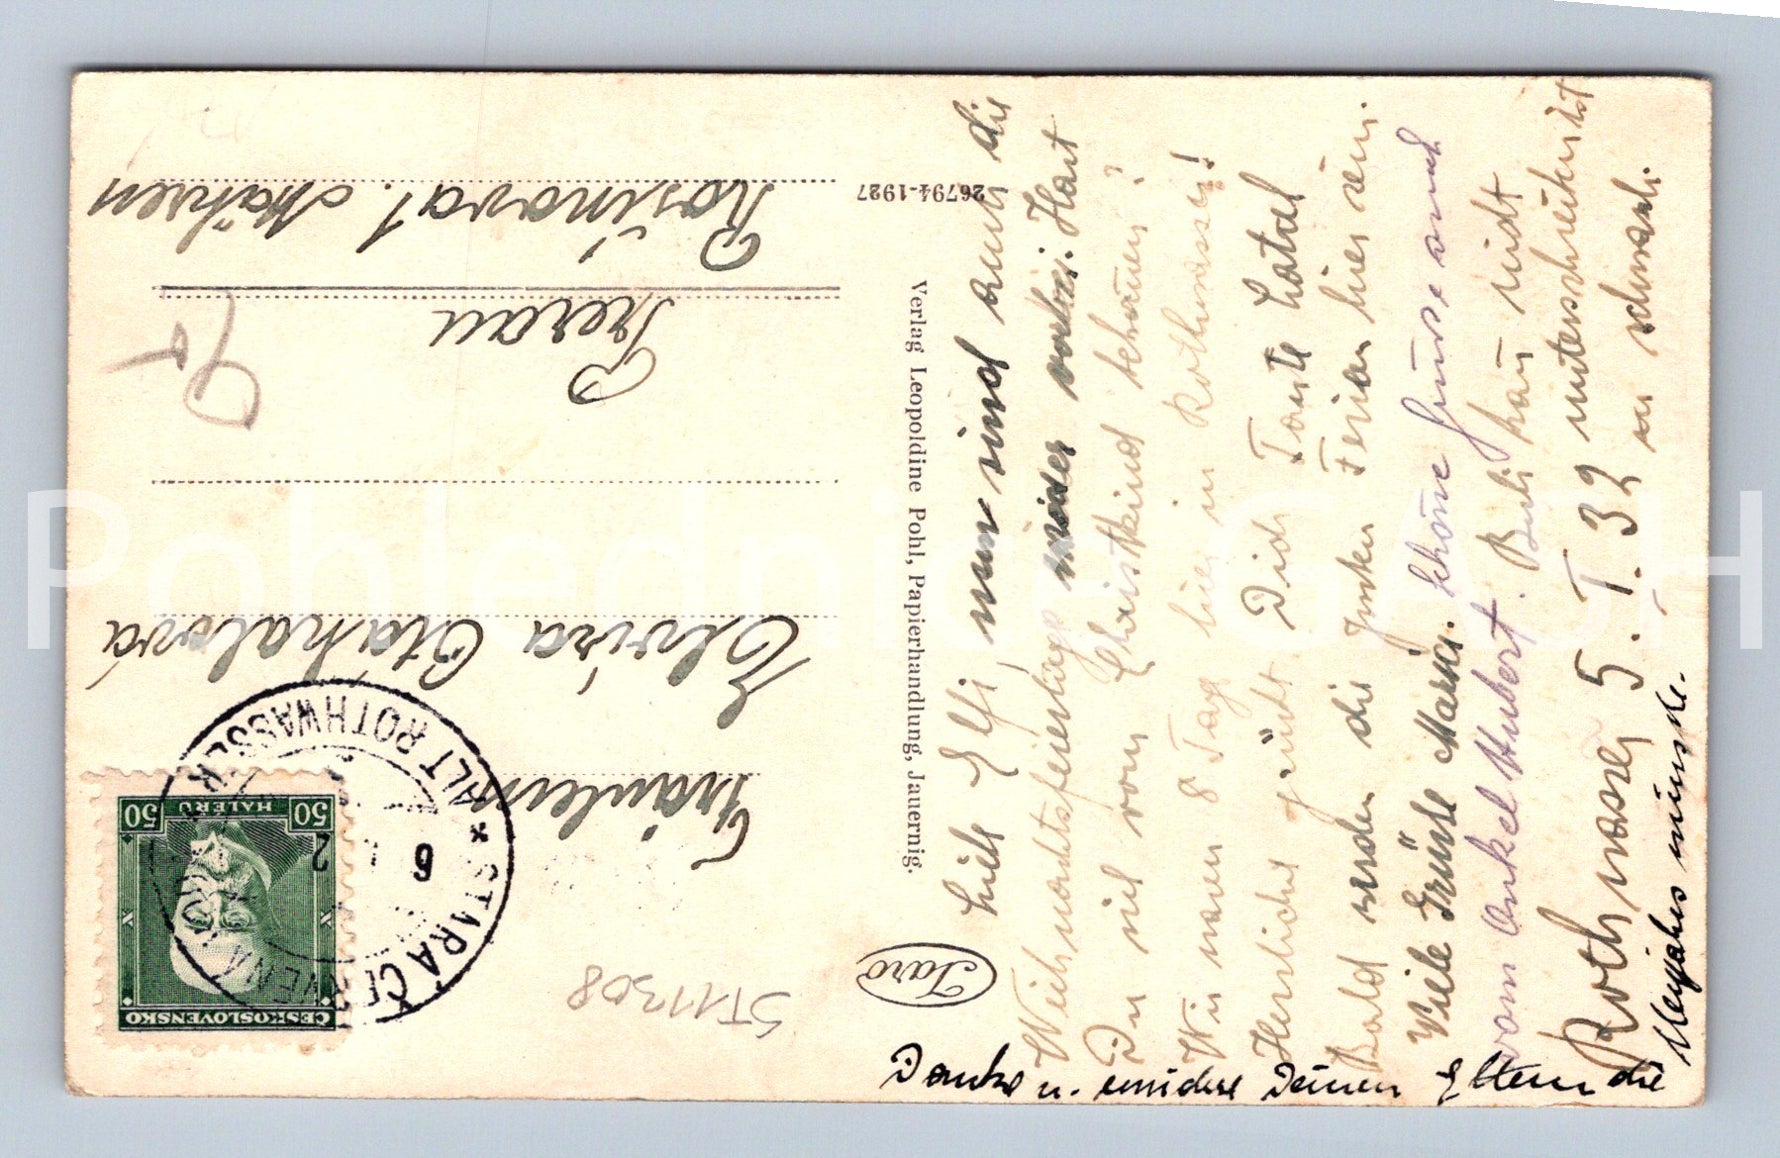 Liebe Elfi, nun sind auch die
Weihnachtsfeiertage wieder vorbei. Hast
Du viel vom Christkind bekommen?
Wir waren 8 Tage hier in Rothwasser!
Herrlichst grüßt Dich Tante
Bald werden die Ferien hier sein.
Viele Grüße Marie. schöne Grüsse auch
vom Onkel Hubert. Bubi kann nicht
unterschreiben ist
Rothwasser 5. I. 32 zu schwach.
Danke u. erwidere Deinen Eltern die
Neujahrswünsche.
Fräulein
Elvira Otáhalová
Prerau
Rosinova 1. Mähren
90-
ST111308
Verlag Leopoldine Pohl, Papierhandlung, Jauernig.
26794-1927
Faro
ČESKOSLOVENSKO
50 HALÉŘŮ 50
STARÁ ČERVENÁ VODA
* ALT ROTHWASSER *
6
Pohlednice